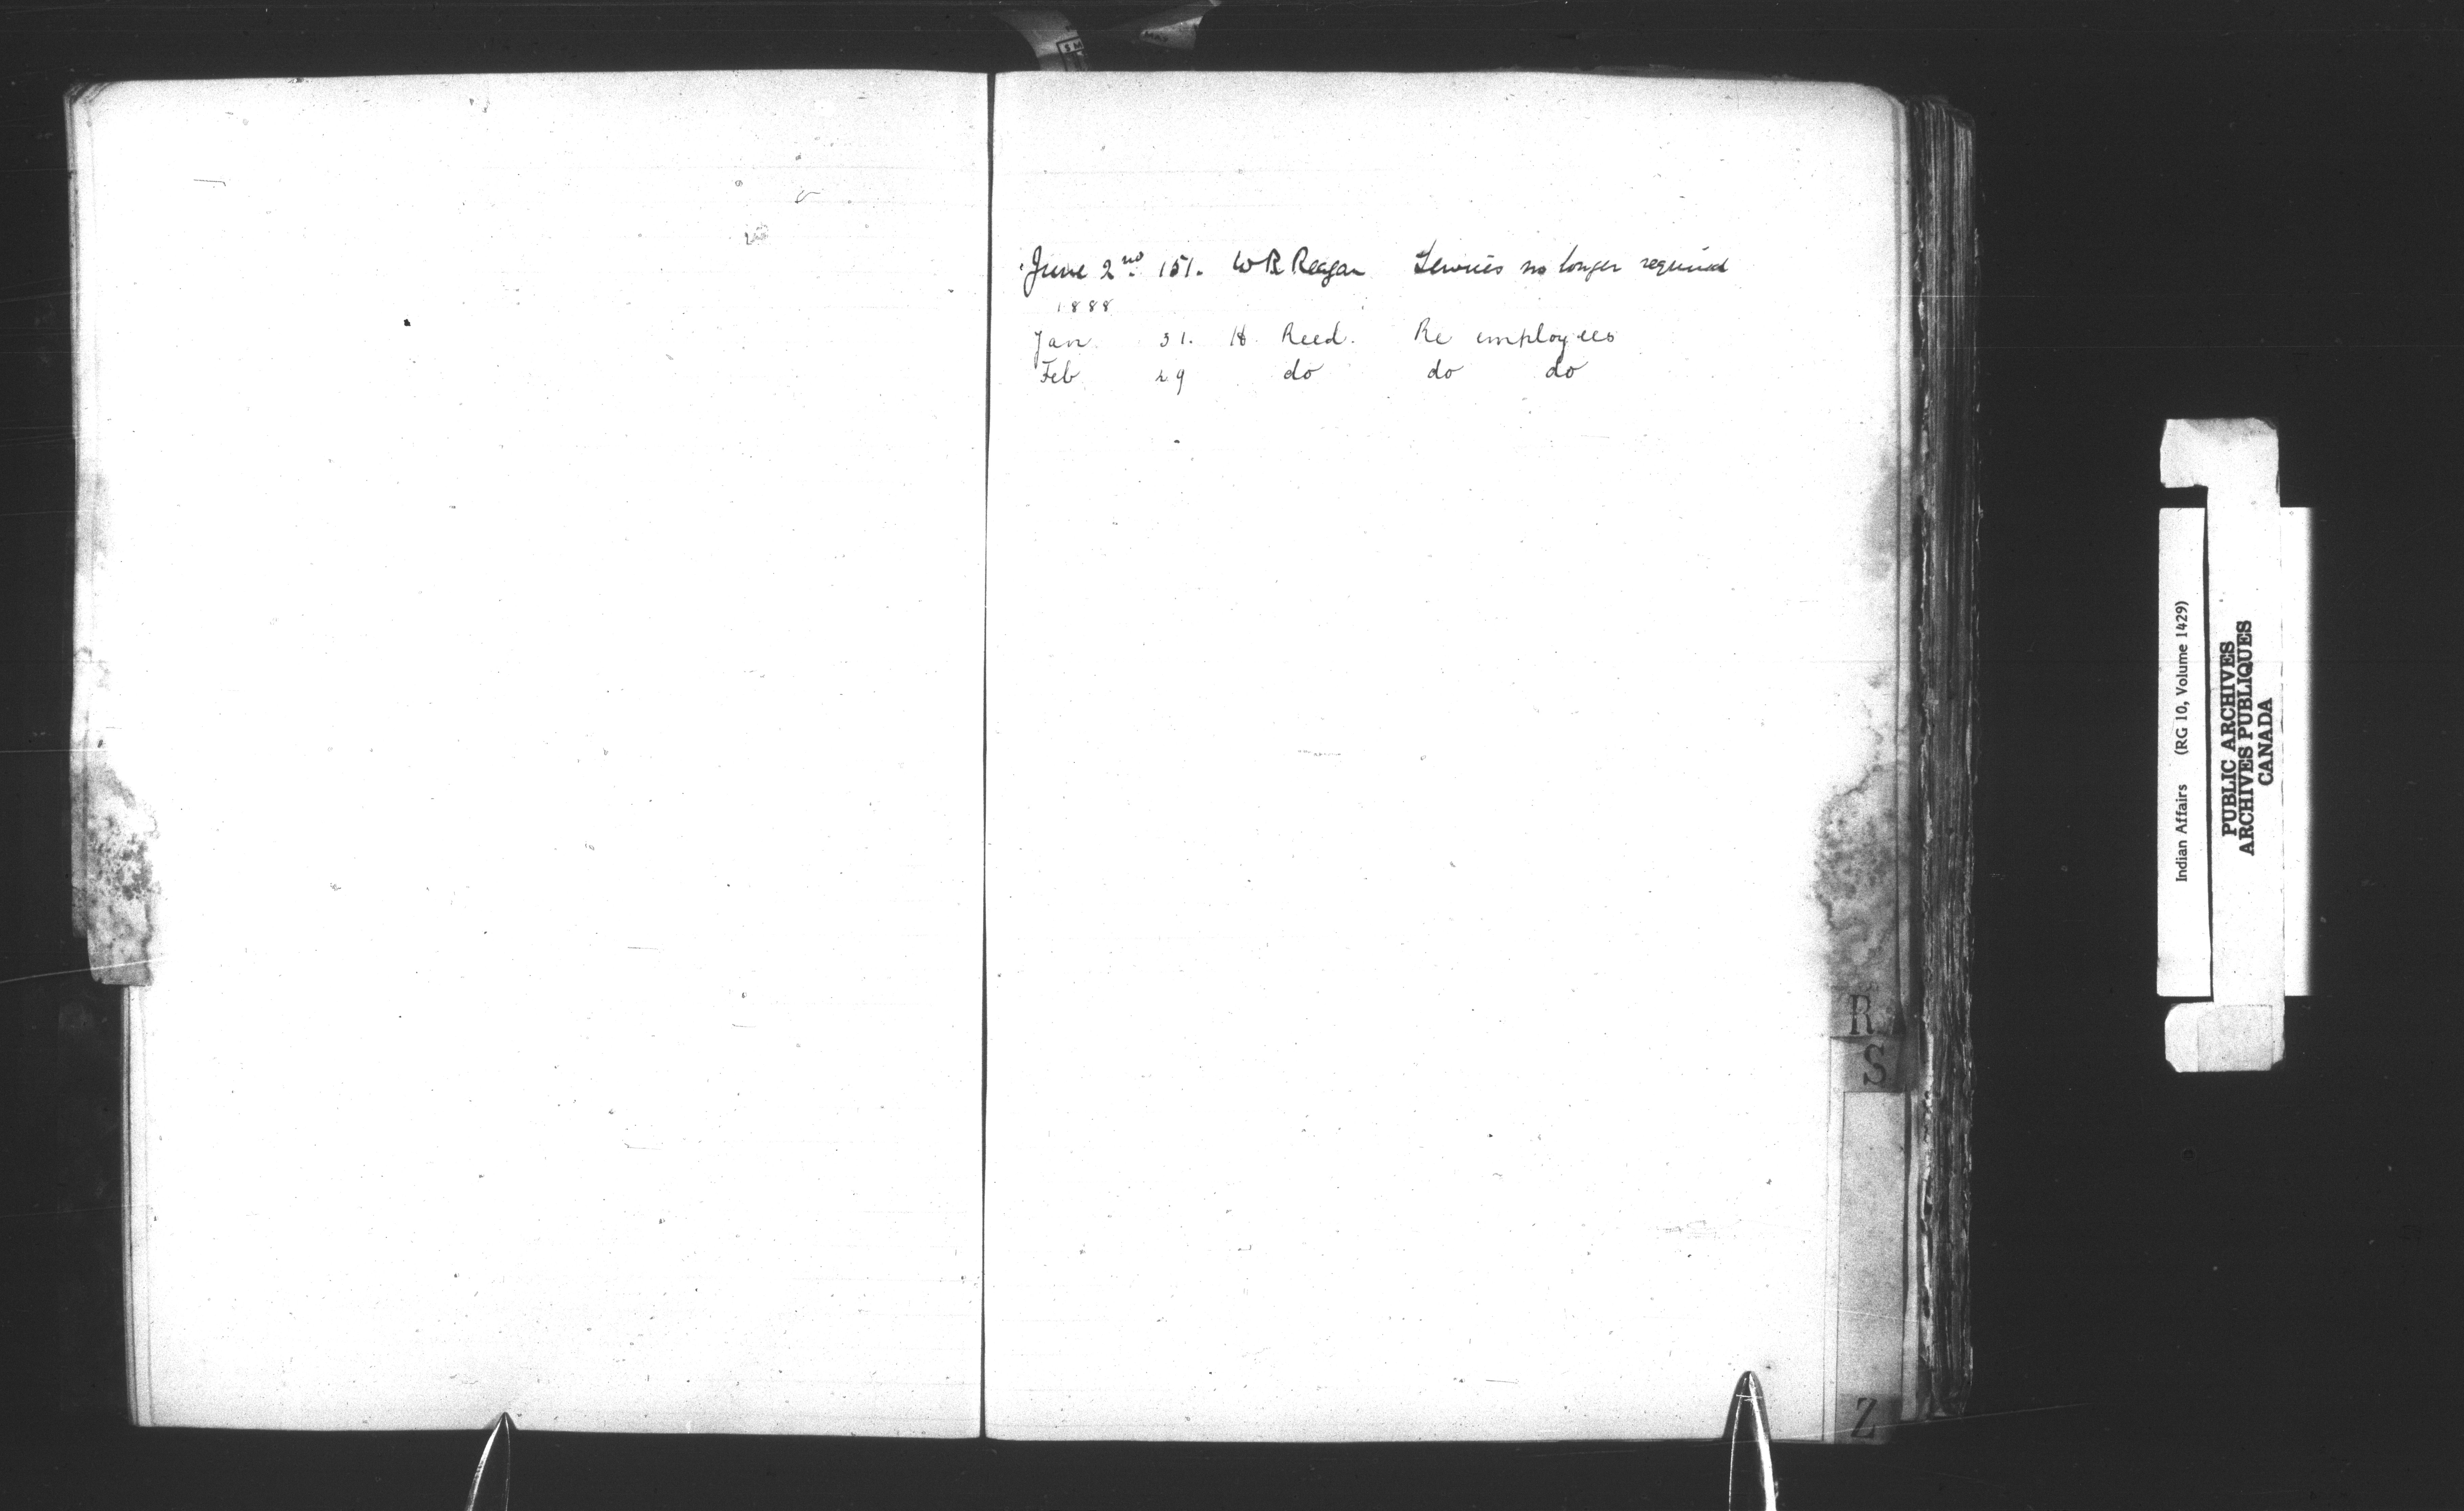 June 2nd 151. W R Reagan Services no longer required
1888
Jan 31. H Reed. Re employees
Feb 29 do do do
R
S
Z
Indian Affairs (RG 10, Volume 1429)
PUBLIC ARCHIVES
ARCHIVES PUBLIQUES
CANADA